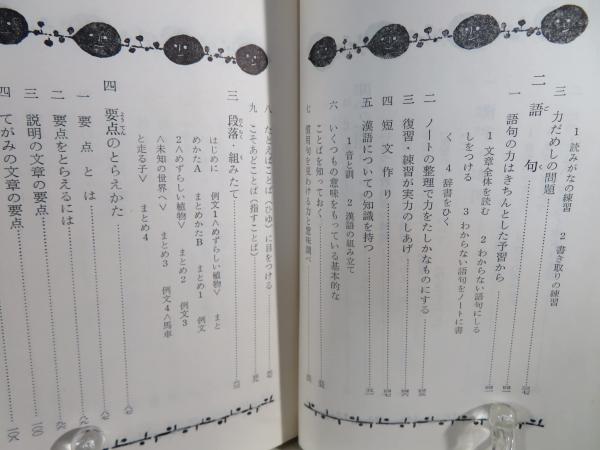 三 力だめしの問題
1 読みがなの練習 2 書き取りの練習
二 語句
一 語句の力はきちんとした予習から
1 文章全体を読む 2 わからない語句にしる
しをつける 3 わからない語句をノートに書
く 4 辞書をひく
二 ノートの整理で力をたしかなものにする
三 復習・練習が実力のしあげ
四 短文作り
五 漢語についての知識を持つ
1 音と訓 2 漢語の組み立て
六 いくつもの意味をもっている基本的な
ことばを知っておく
七 慣用句を見わける力と意味調べ
八 たとえことば(ひゆ)に目をつける
九 こそあどことば(指すことば)
三 段落・組みたて
はじめに 例文1〈めずらしい植物〉 まと
めかたA まとめかたB まとめ1 例文
2〈めずらしい植物〉 まとめ2 例文3
〈未知の世界へ〉 まとめ3 例文4〈馬車
と走る子〉 まとめ4
四 要点のとらえかた
一 要点とは
二 要点をとらえるには
三 説明の文章の要点
四 てがみの文章の要点